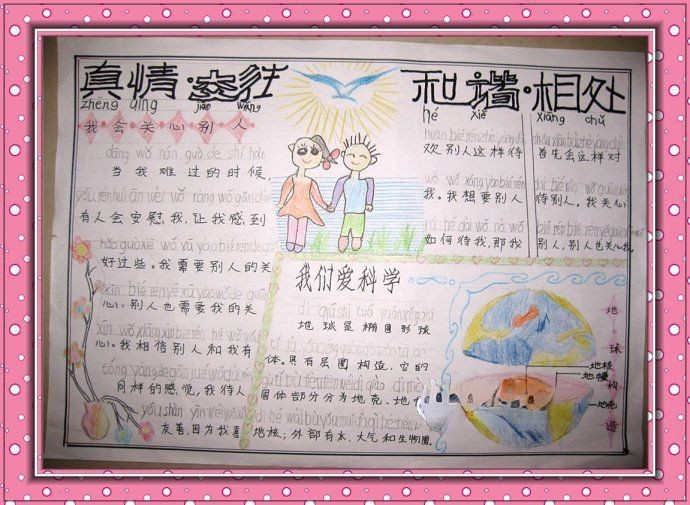 真情·交往
zhēng qíng jiāo wǎng
我会关心别人
dāng wǒ nán guò de shí hòu
当我难过的时候,
yǒu rén huì ān wèi wǒ ràng wǒ gǎn dào
有人会安慰我,让我感到
hǎo guò xiē wǒ xū yào bié rén de guān
好过些。我需要别人的关
xīn bié rén yě xū yào wǒ de guān
心,别人也需要我的关
xīn wǒ xiāng xìn bié rén hé wǒ yǒu
心。我相信别人和我有
tóng yàng de gǎn jué wǒ dài rén
同样的感觉,我待人
yǒu shàn yīn wèi wǒ xǐ
友善,因为我喜
和谐·相处
hé xié xiāng chǔ
huān bié rén zhè yàng dài
欢别人这样待
wǒ wǒ xiǎng yào bié rén
我。我想要别人
rú hé dài wǒ nà wǒ
如何待我,那我
首先会这样对
待别人。我关心
别人,别人也关心我。
我们爱科学
dì qiú shì tuǒ yuán xíng qiú
地球是椭圆形球
体,具有层圈构造,它的
gù tǐ bù fēn fēn wéi dì qiào dì
固体部分分为地壳、地
地核;外部有水、大气和生物圈。
地球构造
地核
地幔
地壳